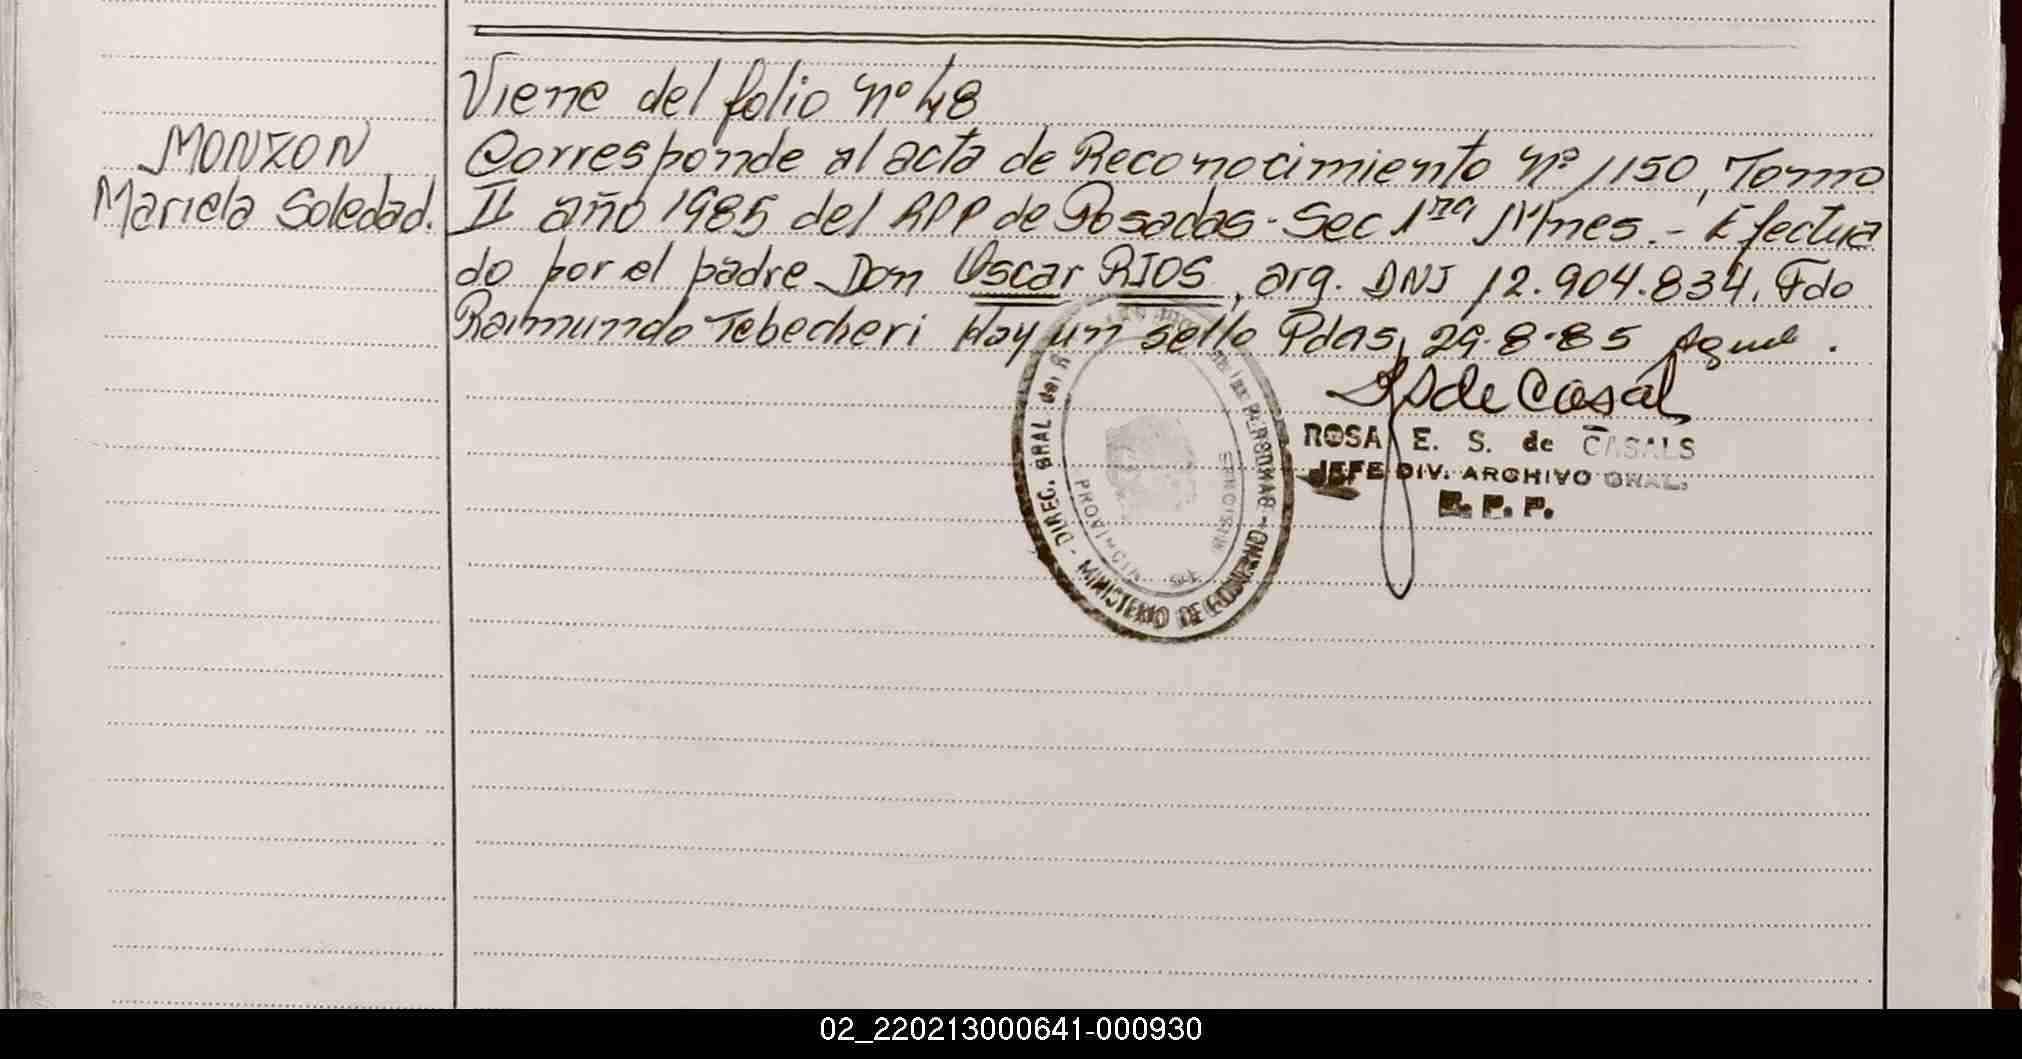 Viene del folio Nº 48
MONZON
Mariela Soledad.
Corresponde al acta de Reconocimiento Nº 1150, Tomo
II año 1985 del RPP de Posadas - Sec 1ra Mnes. - Efectua
do por el padre Don Oscar RIOS, arg. DNI 12.904.834. Fdo
Raimundo Tebecheri Hay un sello Pdas, 29-8-85
de Casal
ROSA E. S. de CASALS
JEFE DIV. ARCHIVO GRAL.
R. P. P.
DIREC. GRAL del R DE LAS PERSONAS - MINISTERIO DE GOBIERNO -
PROVINCIA DE MISIONES
02_220213000641-000930